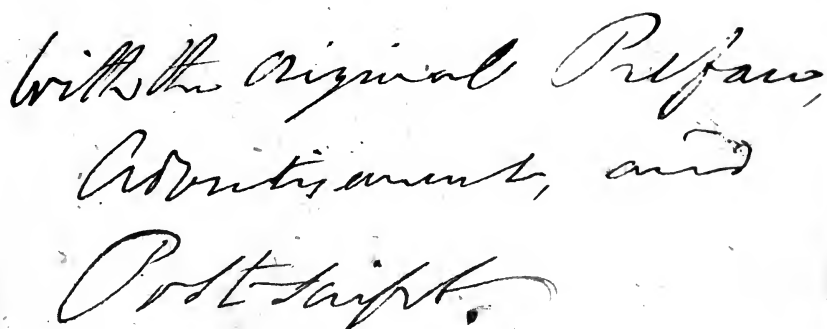 With the Original Preface,
Advertisement, and
Postscript.